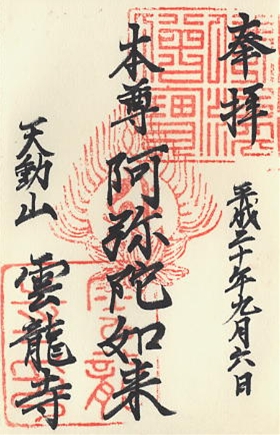 奉拝
平成二十年九月六日
本尊 阿弥陀如来
天動山 雲龍寺